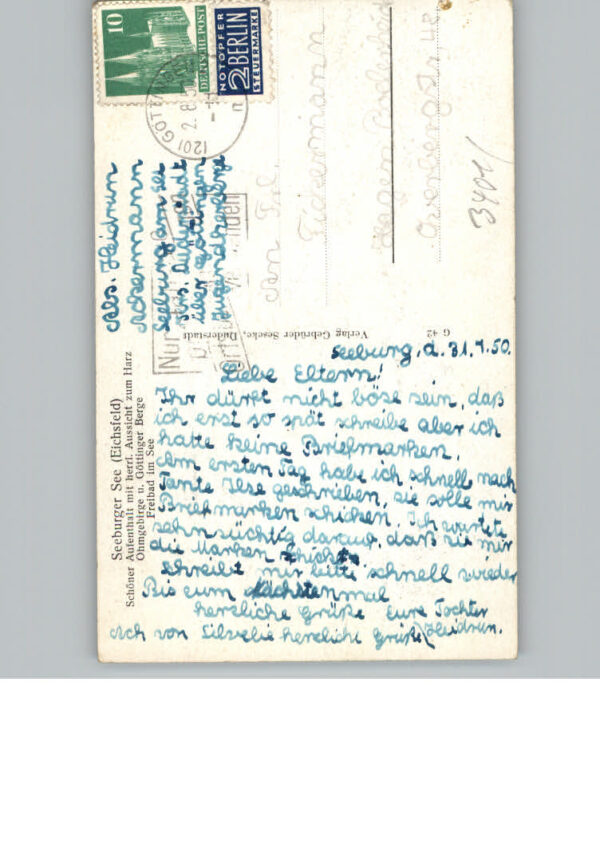 10
DEUTSCHE POST
NOTOPFER
2 BERLIN
STEUERMARKE
(20) GÖTTINGEN
2.8.50
Abs. Heidrun
Ackermann
Seeburg am See
Krs. Duderstadt
über Göttingen
Jugendherberge
An Frl.
Hagen
48
3401/
Verlag Gebrüder Sesecke, Duderstadt
G 42
Seeburger See (Eichsfeld)
Schöner Aufenthalt mit herrl. Aussicht zum Harz
Ohmgebirge u. Göttinger Berge
Freibad im See
Seeburg, d. 31.7.50.
Liebe Eltern!
Ihr dürft nicht böse sein, daß
ich erst so spät schreibe aber ich
hatte keine Briefmarken.
Am ersten Tag habe ich schnell nach
Tante Ilse geschrieben, sie solle mir
Briefmarken schicken. Ich wartete
sehnsüchtig darauf, daß sie mir
die Marken schickt
Schreibt mir bitte schnell wieder
Bis zum Nächstenmal
herzliche Grüße eure Tochter
Heidrun.
Ach von Silvelie herzliche Grüße